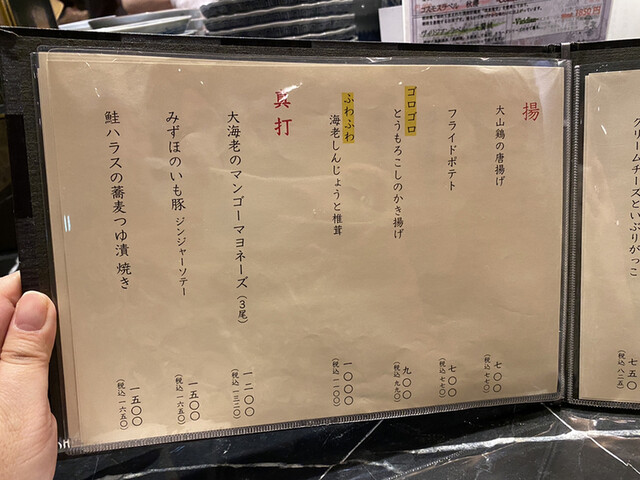 揚
大山鶏の唐揚げ 七〇〇(税込 七七〇)
フライドポテト 七〇〇(税込 七七〇)
ゴロゴロ とうもろこしのかき揚げ 九〇〇(税込 九九〇)
ふわふわ 海老しんじょうと椎茸 一〇〇〇(税込 一一〇〇)
真打
大海老のマンゴーマヨネーズ(3尾) 一二〇〇(税込 一三二〇)
みずほのいも豚 ジンジャーソテー 一五〇〇(税込 一六五〇)
鮭ハラスの蕎麦つゆ漬 焼き 一五〇〇(税込 一六五〇)
クリームチーズといぶりがっこ 七五〇(税込 八二五)